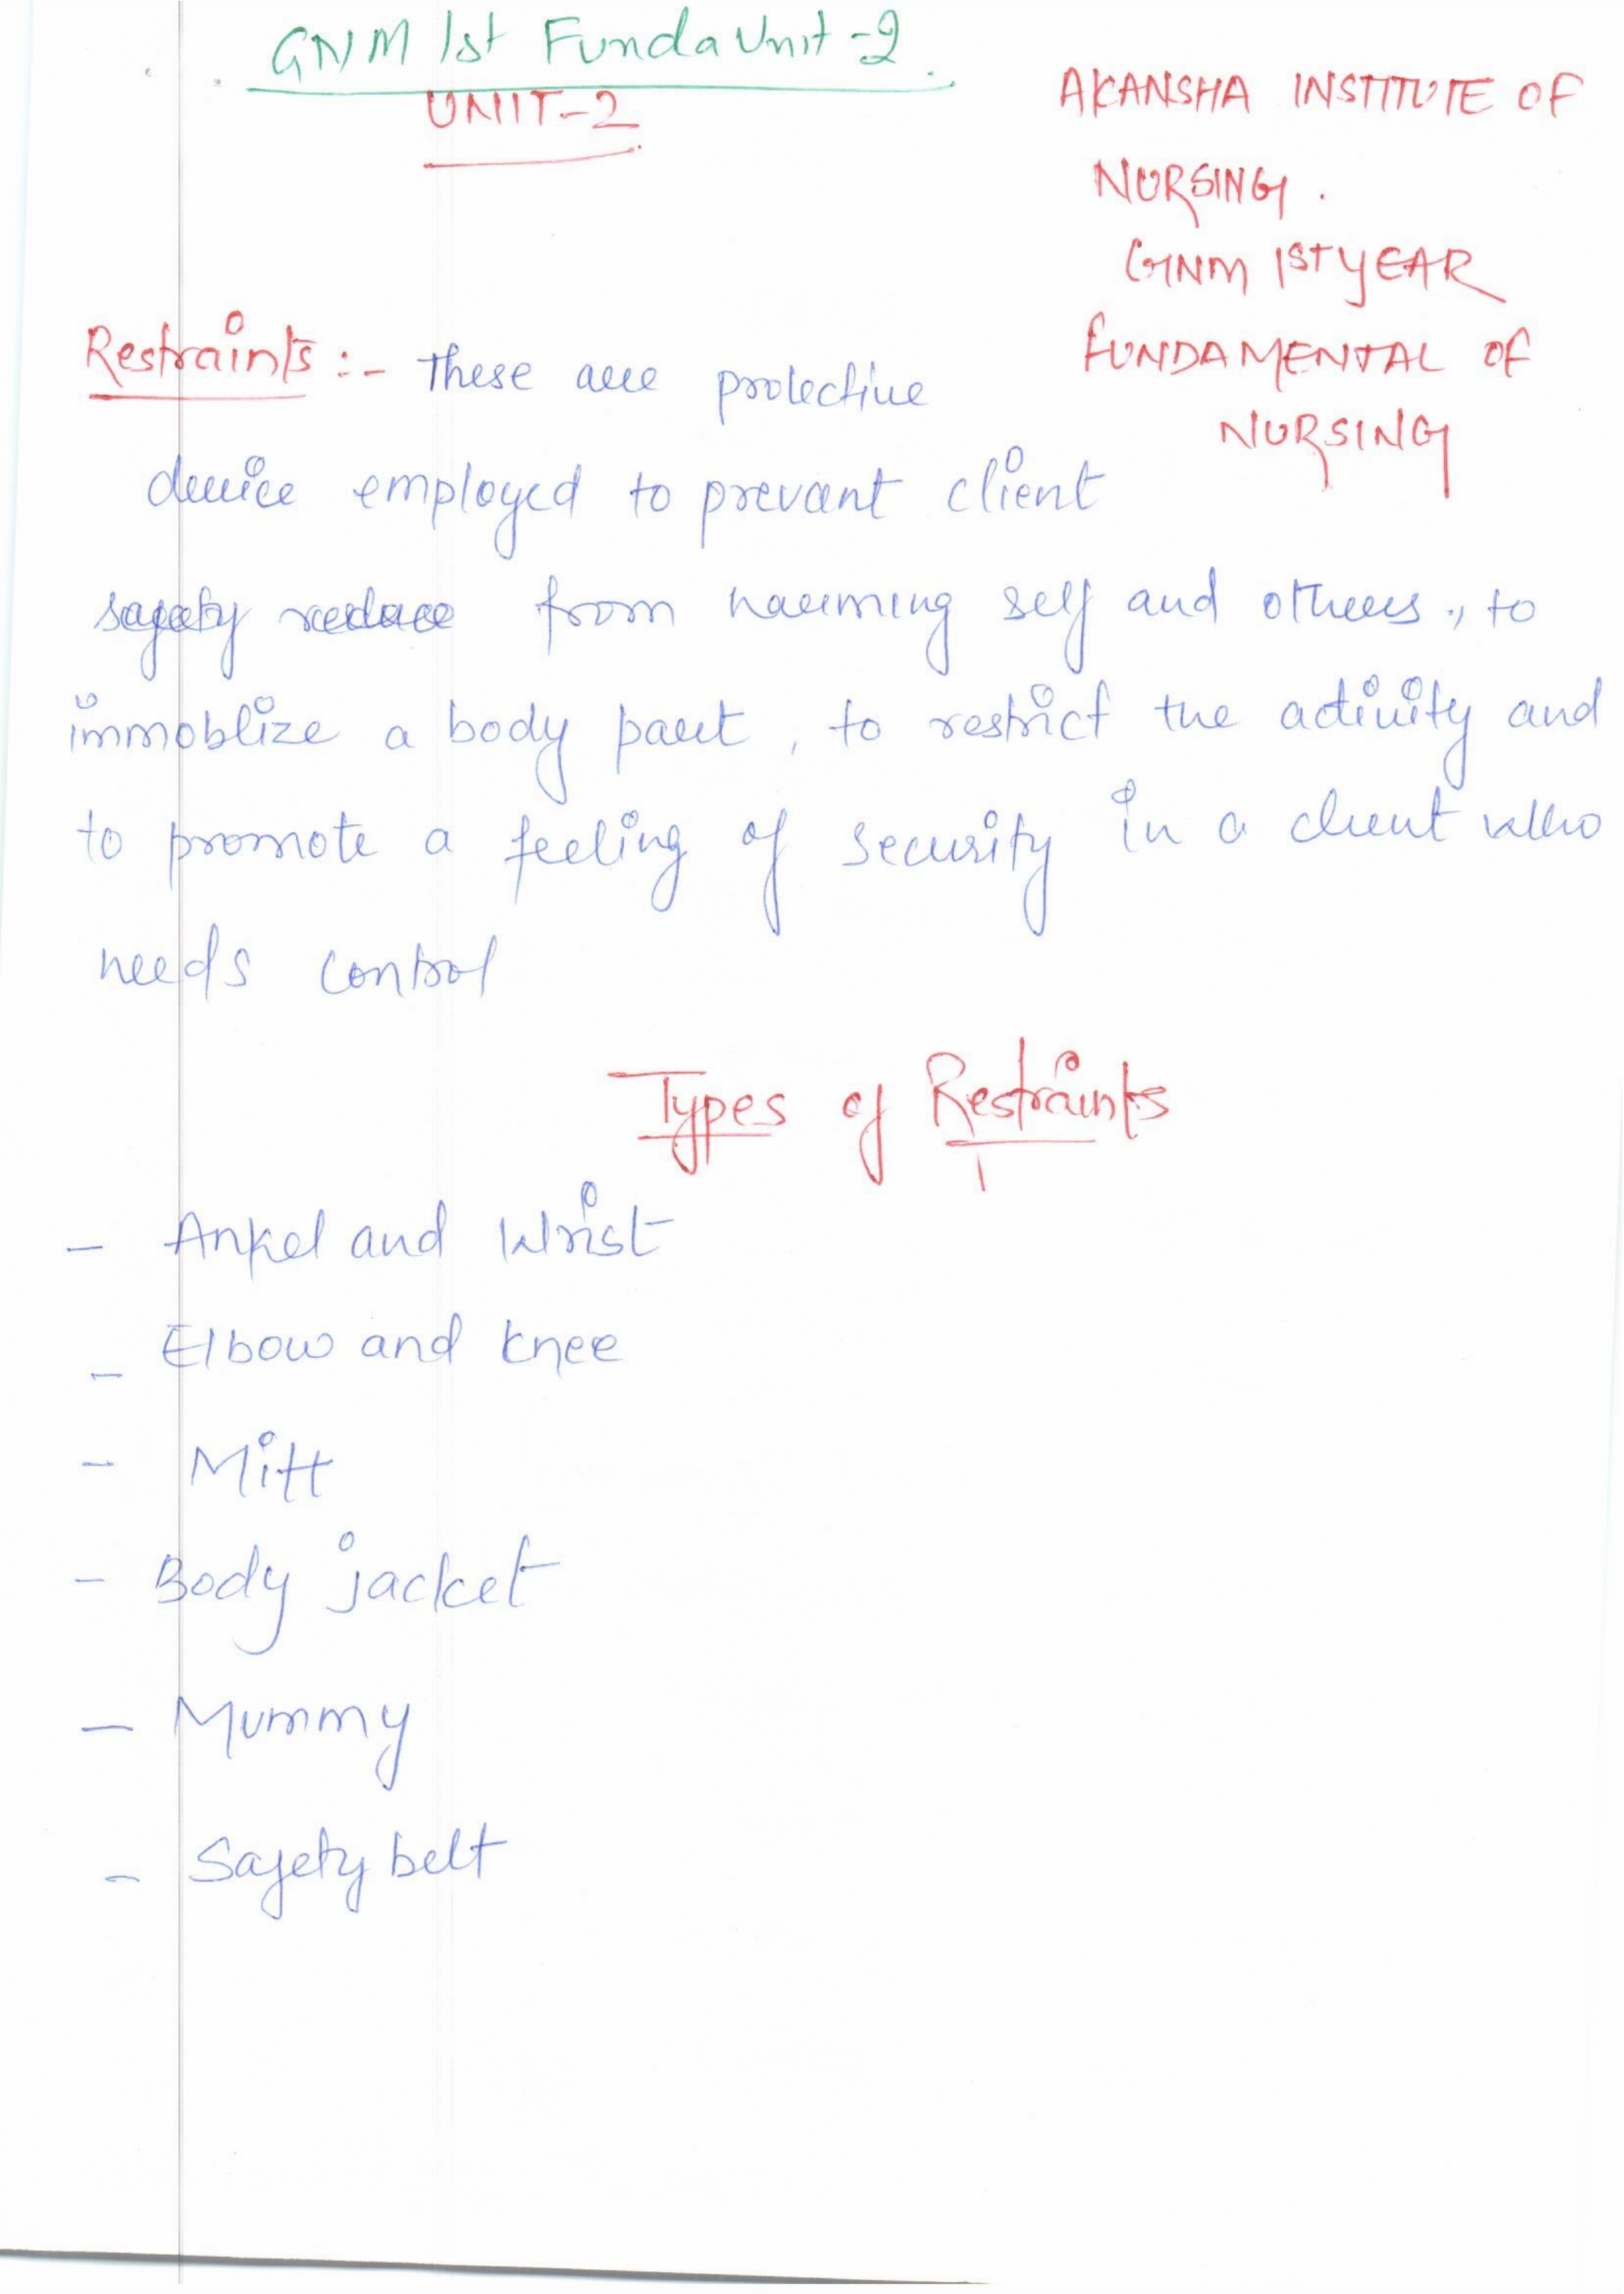 GNM 1st Funda Unit-2
UNIIT-2
AKANSHA INSTITUTE OF
NURSING.
GNM 1ST YEAR
FUNDAMENTAL OF
NURSING
Restraints :- These are protective
device employed to prevant client
sagety reduce from harming self and others, to
immoblize a body part, to restrict the activity and
to promote a feeling of security in a client who
needs control
Types of Restraints
- Ankel and Wrist
- Elbow and knee
- Mitt
- Body jacket
- Mummy
- Safety belt